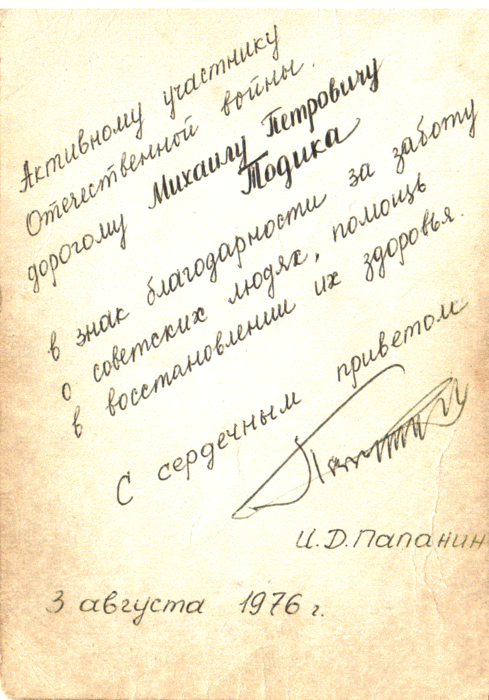 Активному участнику
Отечественной войны.
дорогому Михаилу Петровичу
Тодика
в знак благодарности за заботу
о советских людях, помощь
в восстановлении их здоровья.
С сердечным приветом
И.Д.Папанин
3 августа 1976 г.